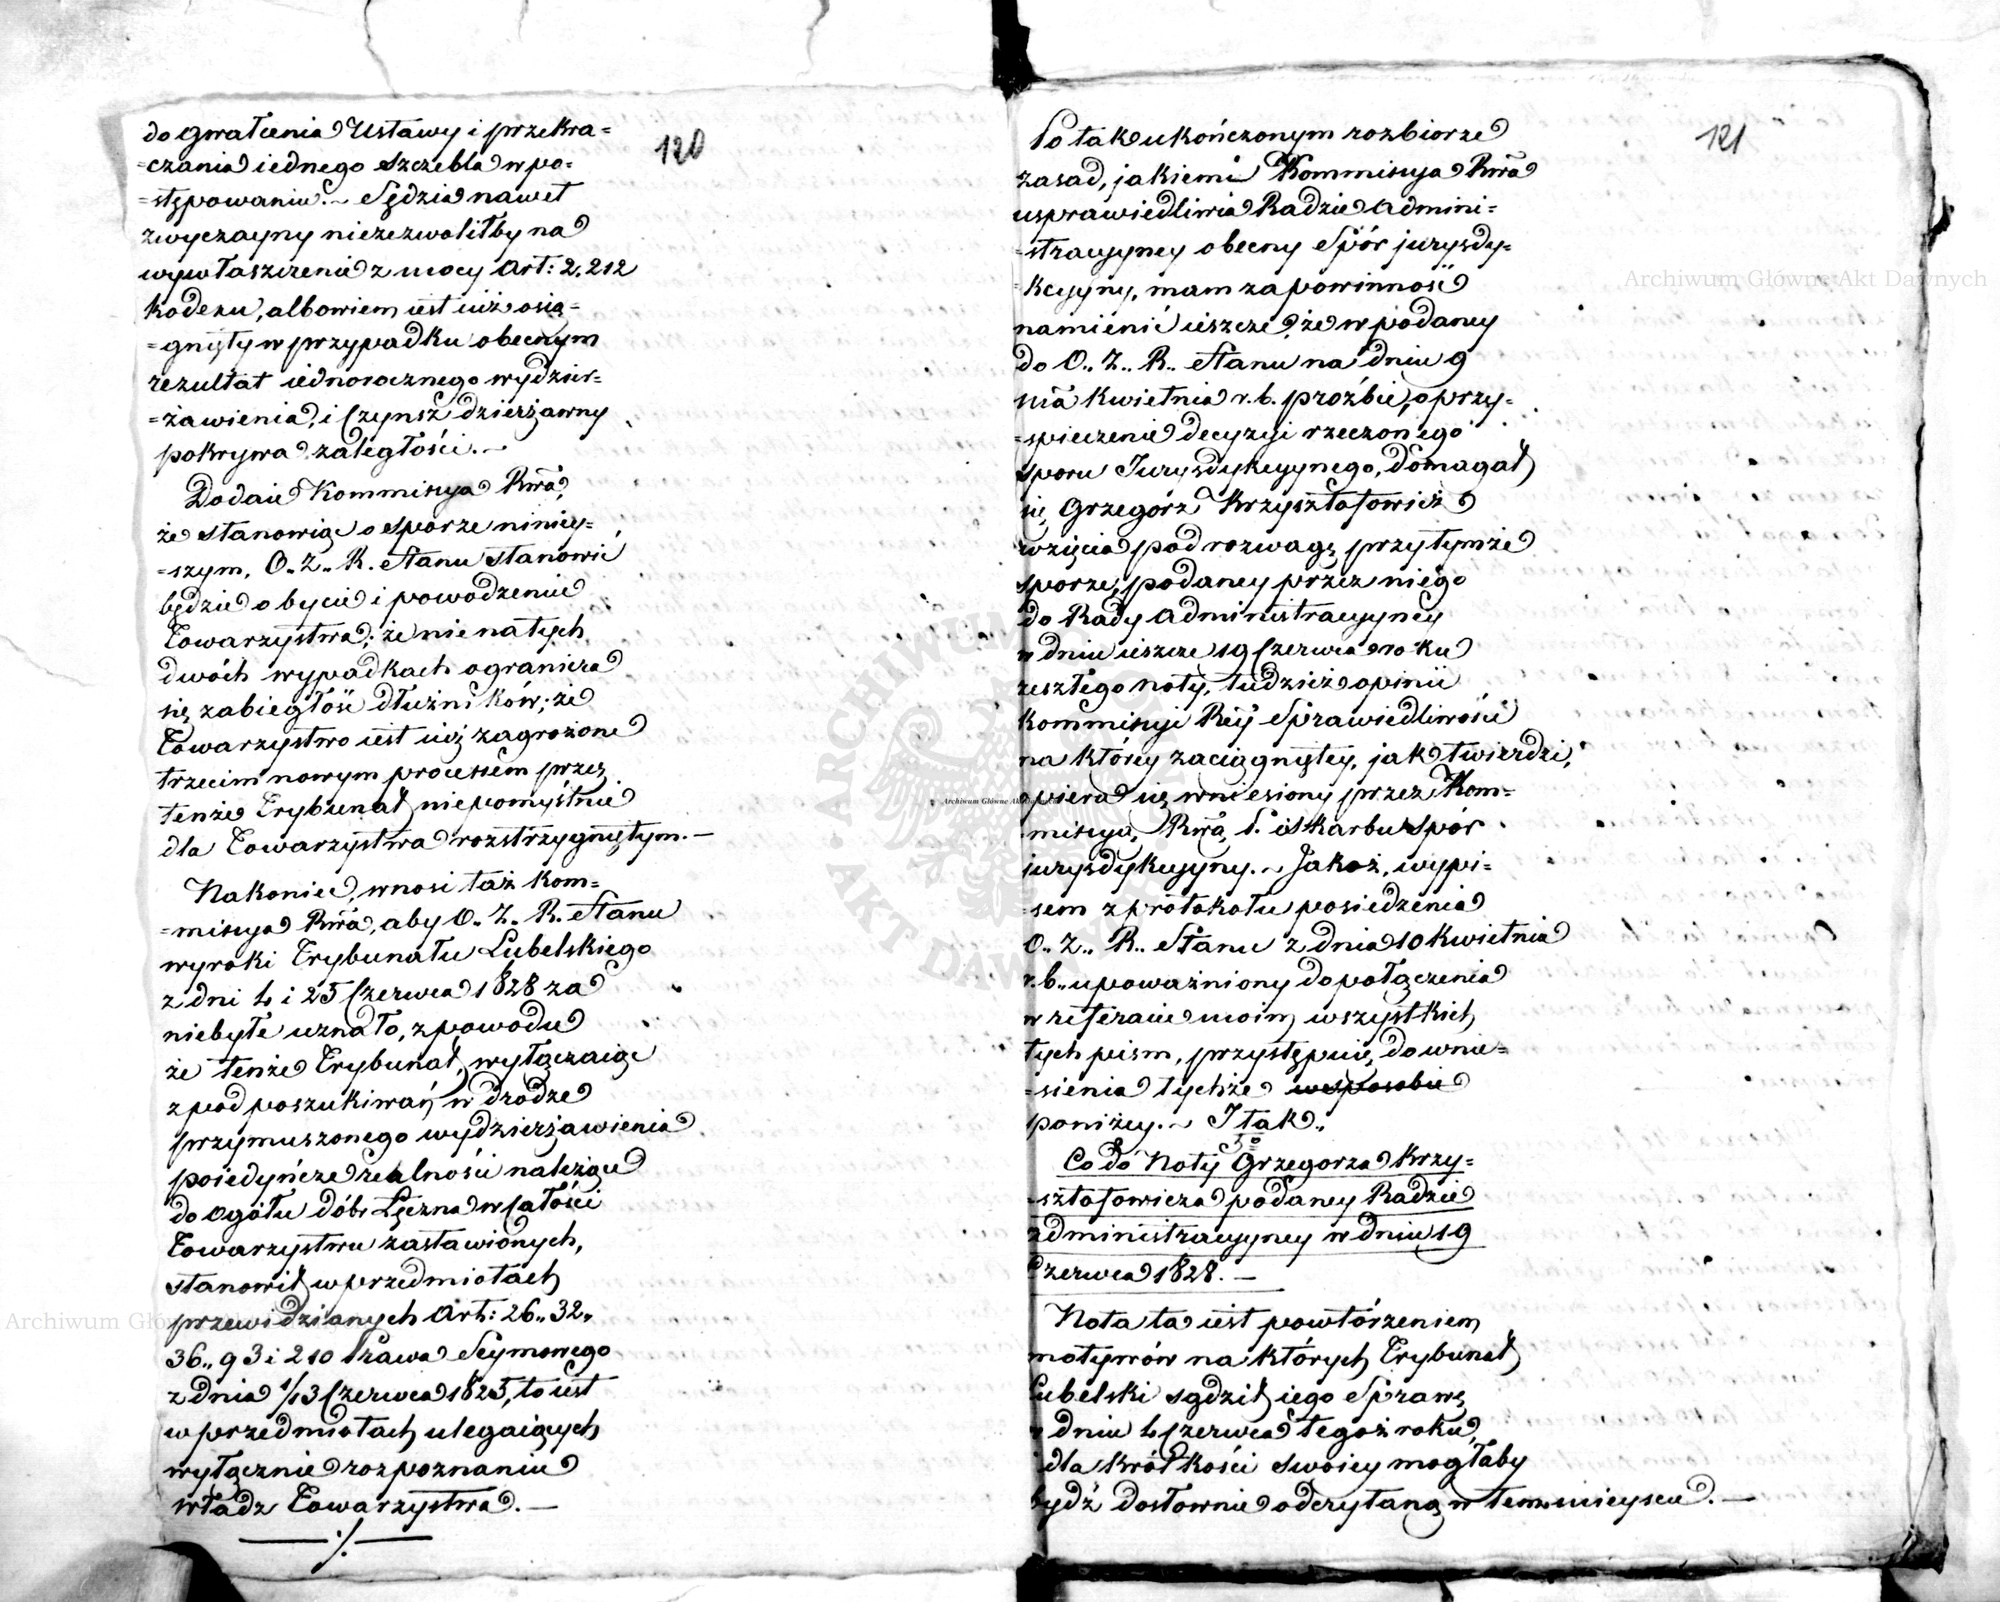 120
do gwałcenia Ustawy i przekra=
=czania iednego szczebla w po=
=stępowaniu. ~ Sędzia nawet
zwyczayny niezezwoliłby na
wywłaszczenie z mocy Art: 2,212
kodexu, albowiem iest iuż osią=
=gnięty w przypadku obecnym
rezultat iednorocznego wydzier=
=żawienia, i Czynsz dzierżawny
pokrywa zaległości. ~
Dodaie Kommissya Rwa,
że stanowiąc o sporze niniey=
=szym, O. Z. R. Stanu stanowić
będzie o bycie i powodzenie
Towarzystwa; że nie na tych
dwóch wypadkach ogranicza
się zabiegłość dłużników; że
Towarzystwo iest iuż zagrożone
trzecim nowym processem przez
tenże Trybunał niepomyślnie
dla Towarzystwa rozstrzygniętym. —
Nakoniec, wnosi taż Kom=
=missya Rwa, aby O. Z. R. Stanu
wyroki Trybunału Lubelskiego
z dni 4 i 25 Czerwca 1828 za
niebyłe uznało, z powodu
że tenże Trybunał, wyłączaiąc
z pod poszukiwań w drodze
przymuszonego wydzierżawienia
poiedyńcze realności należące
do ogółu dóbr Łęczna w całości
Towarzystwu zastawionych,
stanowił w przedmiotach
przewidzianych Art: 26,, 32,,
36,, 93 i 210 Prawa Seymowego
z dnia 1/13 Czerwca 1825, to iest
w przedmiotach ulegaiących
wyłącznie rozpoznaniu
władz Towarzystwa. —
—·/.—
121
Po tak ukończonym rozbiorze
zasad, jakiemi Kommissya Rwa
usprawiedliwia Radzie Admini=
=stracyyney obecny Spór jurysdy=
=kcyyny, mam za powinność
namienić ieszcze, że w podaney
do O. Z. R. Stanu na dniu 9
ma Kwietnia r. b. proźbie, o przy=
=spieszenie decyzyi rzeczonego
sporu Jurysdykcyynego, domagał
się Grzegórz Krzysztofowicz
wzięcia pod rozwagę przy tymże
sporze, podaney przez niego
do Rady Administracyyney
w dniu ieszcze 19 Czerwca roku
zeszłego noty, tudzież opinii
Kommissyi Rey Sprawiedliwości
na którey zaciągniętey, jak twierdzi,
opiera się wniesiony przez Kom=
missyą Rwą P. i Skarbu spór
jurysdykcyyny. ~ Jakoż, wypi=
=sem z protokołu posiedzenia
O. Z. R. Stanu z dnia 10 Kwietnia
r. b. upoważniony do połączenia
w referacie moim wszystkich
tych pism, przystępuię, do wnie=
=sienia tychże w sposobie
poniżey. ~ I tak,,
5o
Co do Noty Grzegorza Krzy=
=sztofowicza podaney Radzie
Administracyyney w dniu 19
Czerwca 1828. —
Nota ta iest powtórzeniem
motywów na których Trybunał
Lubelski sądził iego Sprawę
w dniu 4 Czerwca tegoż roku,
i dla krótkości swoiey mogłaby
bydź dosłownie odczytaną w tem mieyscu. —
Archiwum Główne Akt Dawnych